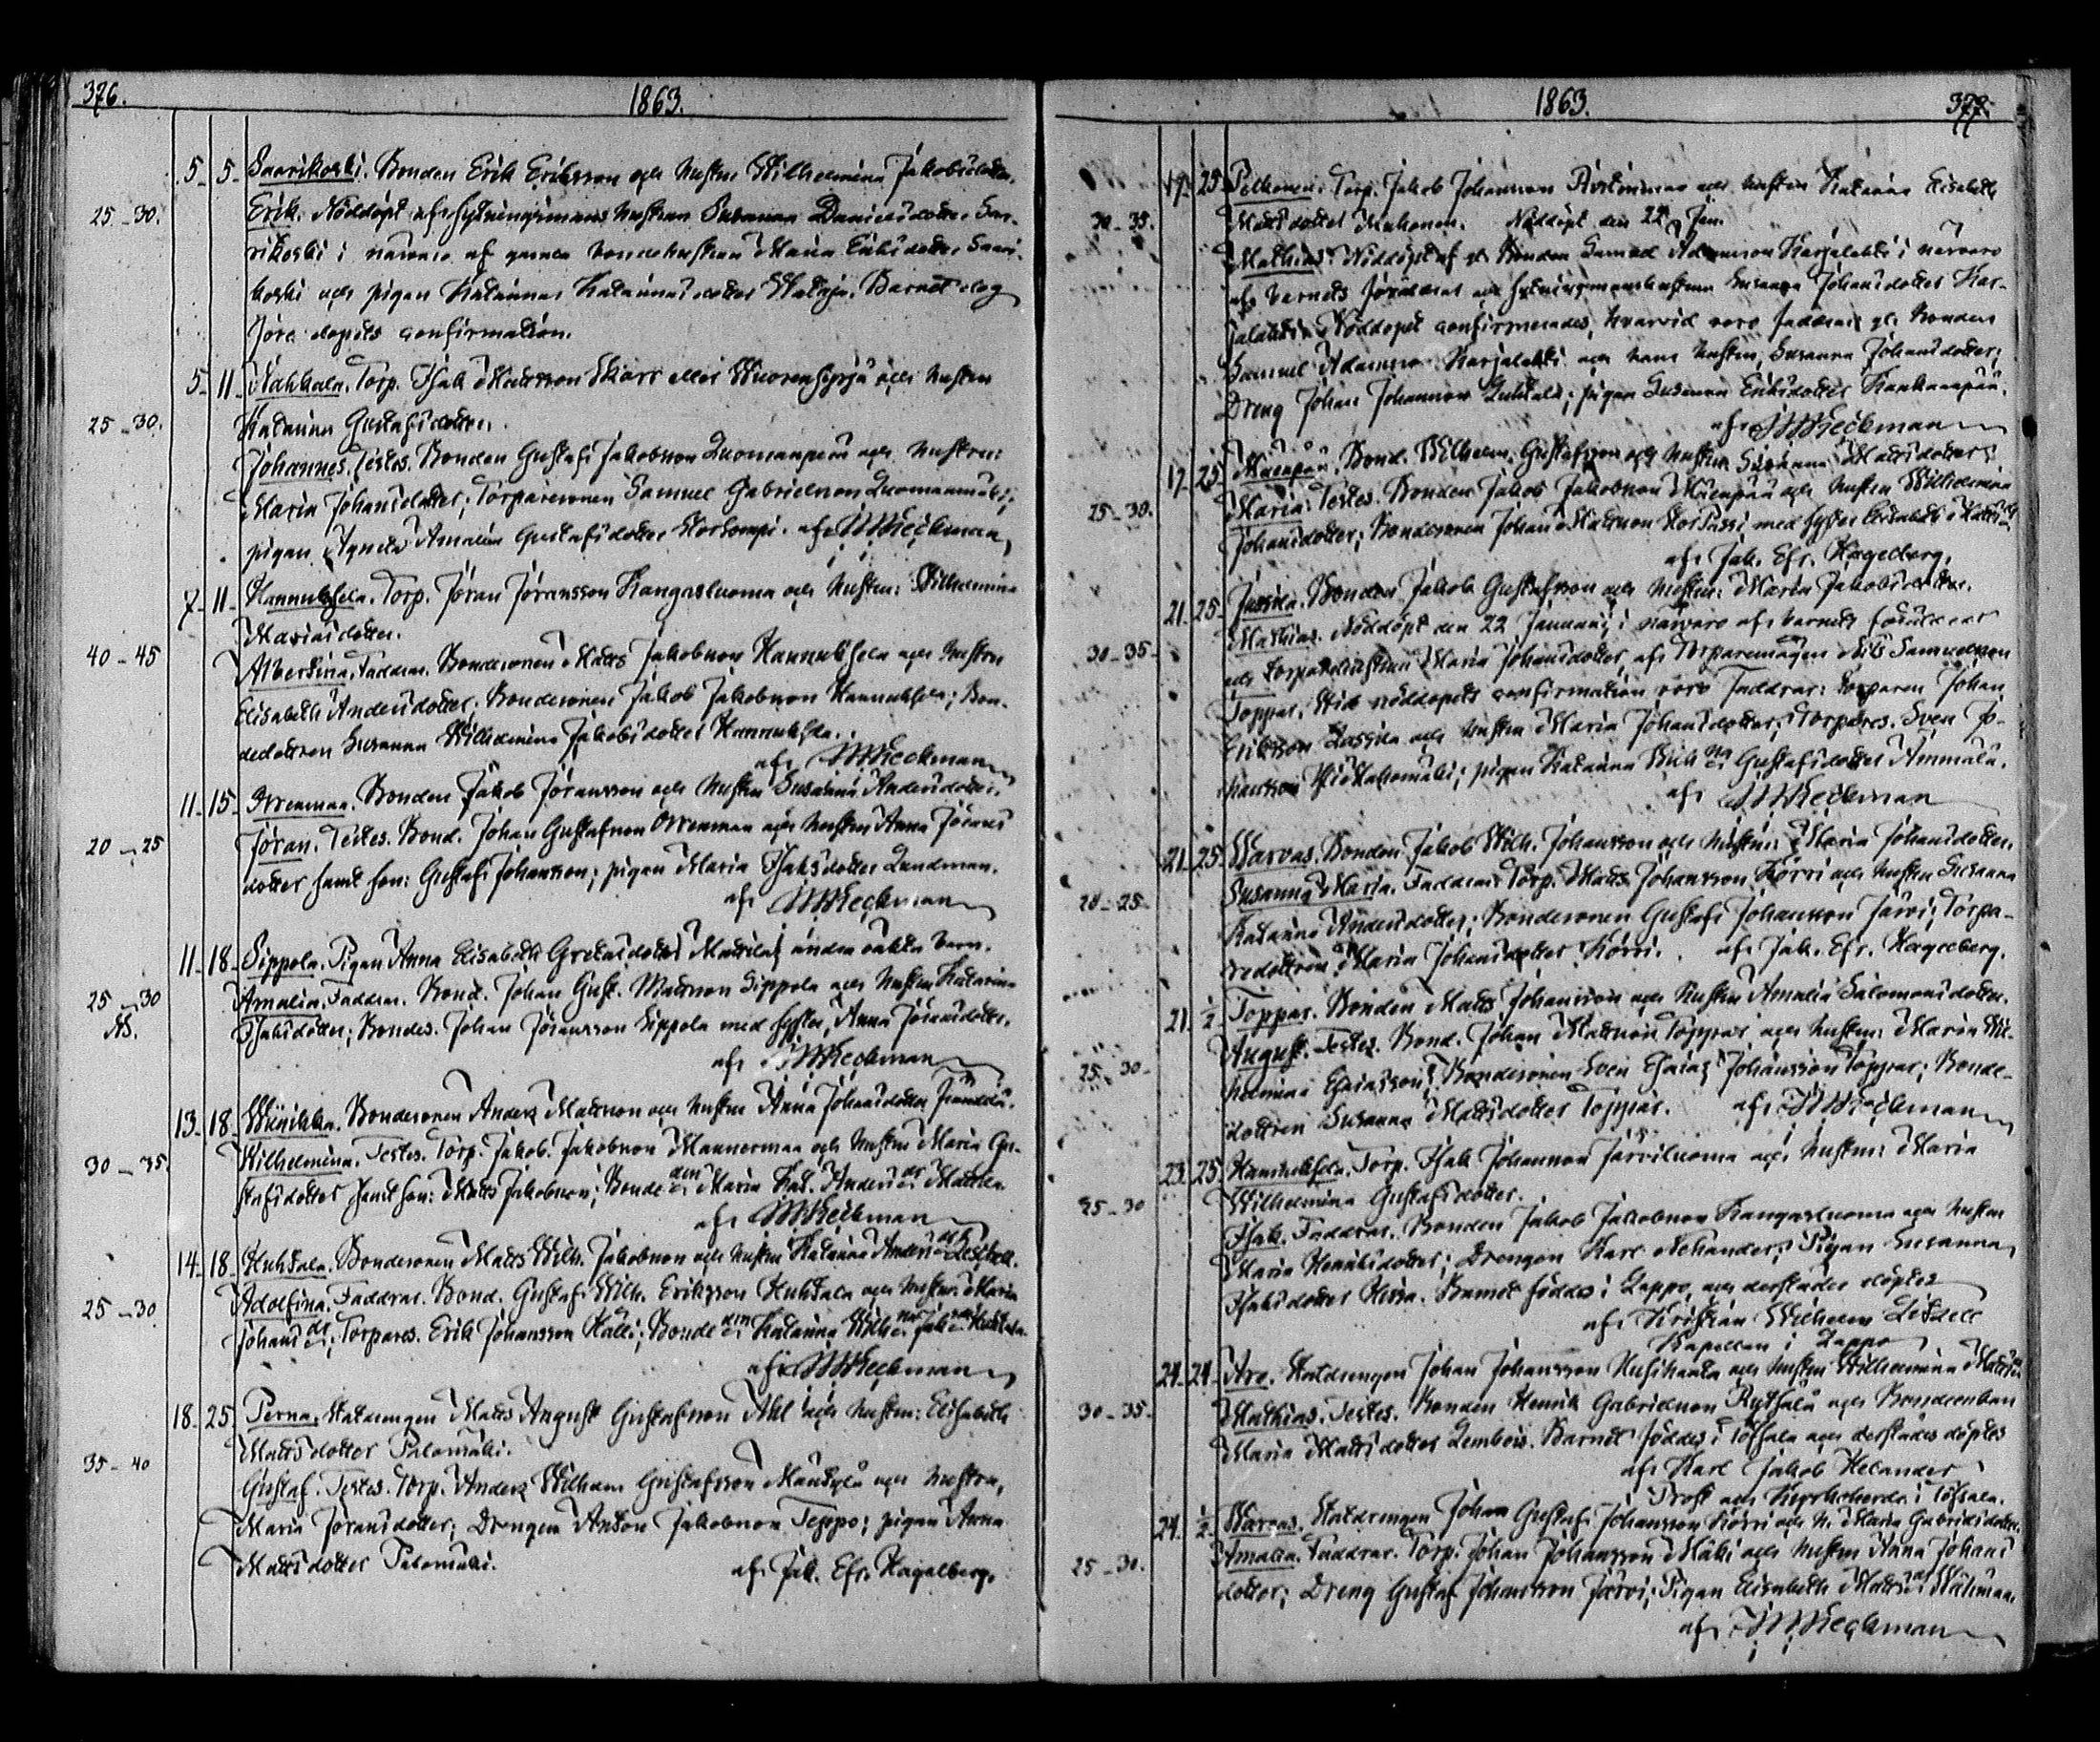 376.
1863.
5. 5. Saarikoski. Bonden Erik Eriksson och hustru Wilhelmina Jakobsdotter.
25-30. Erik. Nöddöpt af sytningsmans hustrun Susanna Danielsdotter Saa-
rikoski i närvaro af gamla bondehustrun Maria Eriksdotter Saari-
koski och pigan Katarina Katarinasdotter Wataja. Barnet dog
före dopets confirmation.
5. 11. Torp. Isak Mattsson och hustru
25-30. Katarina Gustafsdotter.
Johannes. Testes. Bonden Gustaf Jakobsson Luomanpää och hustru:
Maria Johansdotter; Torparesonen Samuel Gabrielsson Luomanmäki;
pigan Agneta Amalia Gustafsdotter af
7. 11. Hannuksela. Torp. Jöran Jöransson Kangasluoma och hustru: Wilhelmina
Mariasdotter.
40-45 Albertina. Faddrar. Bondesonen Matts Jakobsson Hannuksela och hustru
Elisabeth Andersdotter. Bondesonen Jakob Jakobsson Hannuksela; Bon-
dedottren Susanna Wilhelmina Jakobsdotter Hannuksela.
af
11. 15. Orrenmaa. Bonden Jakob Jöransson och hustru Susanna Andersdotter.
20-25 Jöran. Testes. Bond. Johan Gustafsson Orrenmaa och hustru Anna Jörans
dotter samt son: Gustaf Johansson; pigan Maria Isaksdotter Lundman.
af
11. 18. Sippola. Pigan Anna Elisabeth Gretasdotter Mattilas andra oäkta barn.
25-30 Amalia. Faddrar. Bond. Johan Gust. Mattsson Sippola och hustru Katarina
Isaksdotter; Bondes. Johan Jöransson Sippola med syster, Anna Jöransdotter.
af
13. 18. Bondesonen Anders Mattsson och hustru Anna Johansdotter
30-35. Wilhelmina. Testes. Torp. Jakob Jakobsson Mannermaa och hustru Maria Gu-
stafsdotter samt son: Matts Jakobsson; Bonde d:en Maria Kat. Anders d:r Mattila.
af
14. 18. Huhtala. Bondesonen Matts Wilh. Jakobsson och hustru Katarina Anders d:r
25-30 Adolfina. Faddrar. Bond. Gustaf Wilh. Eriksson Huhtala och hustru Maria
Johans d:r; Torpares. Erik Johansson Kalli; Bonde d:en Katarina Wilh:na Jak:s Huhtala.
af
18. 25. Perna. Statdrengen Matts August Gustafsson och hustru: Elisabeth
Mattsdotter Palomäki.
35-40 Gustaf. Testes. Torp. Anders Wilhelm Gustafsson Mäntylä och hustru,
Maria Jöransdotter; Drengen Anton Jakobsson Teppo; pigan Anna
Mattsdotter Palomäki. af Jak. Efr. Hagelberg.
1863.
377.
17. 25. Pelkonen. Torp. Jakob Johansson och hustru Katarina Elisabeth
30-35. Mattsdotter Nöddöpt den 22 Jan.
Mathias. Nöddöpt af Bonden Samuel Adamsson Karjalahti i närvaro
af barnets föräldrar och sytningsmanshustrun Susanna Johansdotter Kar-
jalahti. Nöddopet confirmerades, hvarvid voro faddrar Bonden
Samuel Adamsson Karjalahti och hans hustru, Susanna Johansdotter;
Dreng Johan Johansson Luhtala; pigan Susanna Eriksdotter Kankaanpää.
af
17. 25. Mäenpää. Bond. Wilhelm Gustafsson och hustru Susanna Mattsdotter;
25-30. Maria. Testes. Bonden Jakob Jakobsson Mäenpää och hustru Wilhelmina
Johansdotter; Bondesonen Johan Mattsson med syster Elisabeth
af Jak. Efr. Hagelberg.
21. 25. Jussila. Bonden Jakob Gustafsson och hustru: Maria Jakobsdotter.
30-35. Mathias. Nöddöpt den 22 Januari, i närvaro af barnets föräldrar
och torparehustrun Maria Johansdotter, af Torparemågen Nils Samuelsson
Toppar. Vid nöddopets confirmation voro Faddrar: torparen Johan
Eriksson Lassila och hustru Maria Johansdotter; Torpares. Sven Jo-
hansson pigan Katarina Gustafsdotter Ämmälä.
af
21. 25. Warvas. Bonden Jakob Wilh. Johansson och hustru: Maria Johansdotter.
20-25. Susanna Maria. Faddrar Torp. Matts Johansson Körri och hustru Susanna
Katarina Andersdotter; Bondesonen Gustaf Johansson Järvi; Torpa-
redottren Maria Johansdotter Körri. af Jak. Efr. Hagelberg.
21. 1/2 Toppar. Bonden Matts Johansson och hustru Amalia Salomonsdotter.
25-30. August. Testes. Bond. Johan Mattsson Toppar och hustru: Maria Wil-
helmina Esaiasson; Bondesonen Sven Esaias Johansson Toppar; Bonde-
dottren Susanna Mattsdotter Toppar. af
23. 25. Hannuksela. Torp. Isak Johansson Järviluoma och hustru: Maria
Wilhelmina Gustafsdotter.
25-30 Isak. Faddrar. Bonden Jakob Jakobsson Kangasluoma och hustru
Maria Henriksdotter; Drengen Karl Pigan Susanna
Isaksdotter Barnet föddes i Lappo och derstädes döptes
af Kristian Wilhelm
Kapellan i Lappo
24. 24. Aro. Statdrengen Johan Johansson och hustru Wilhelmina
30-35. Mathias. Testes. Bonden Henrik Gabrielsson och Bondeenkan
Maria Mattsdotter Barnet föddes i Töfsala och derstädes döptes
af Karl Jakob Helander
Prost och Kyrkoherde i Töfsala.
24. 1/2 Warvas. Statdrengen Johan Gustaf Johansson Körri och h. Maria Gabrielsdotter.
25-30. Amalia. Faddrar. Torp. Johan Johansson Mäki och hustru Anna Johans
dotter; Dreng Gustaf Johansson Järvi; Pigan Elisabeth
af